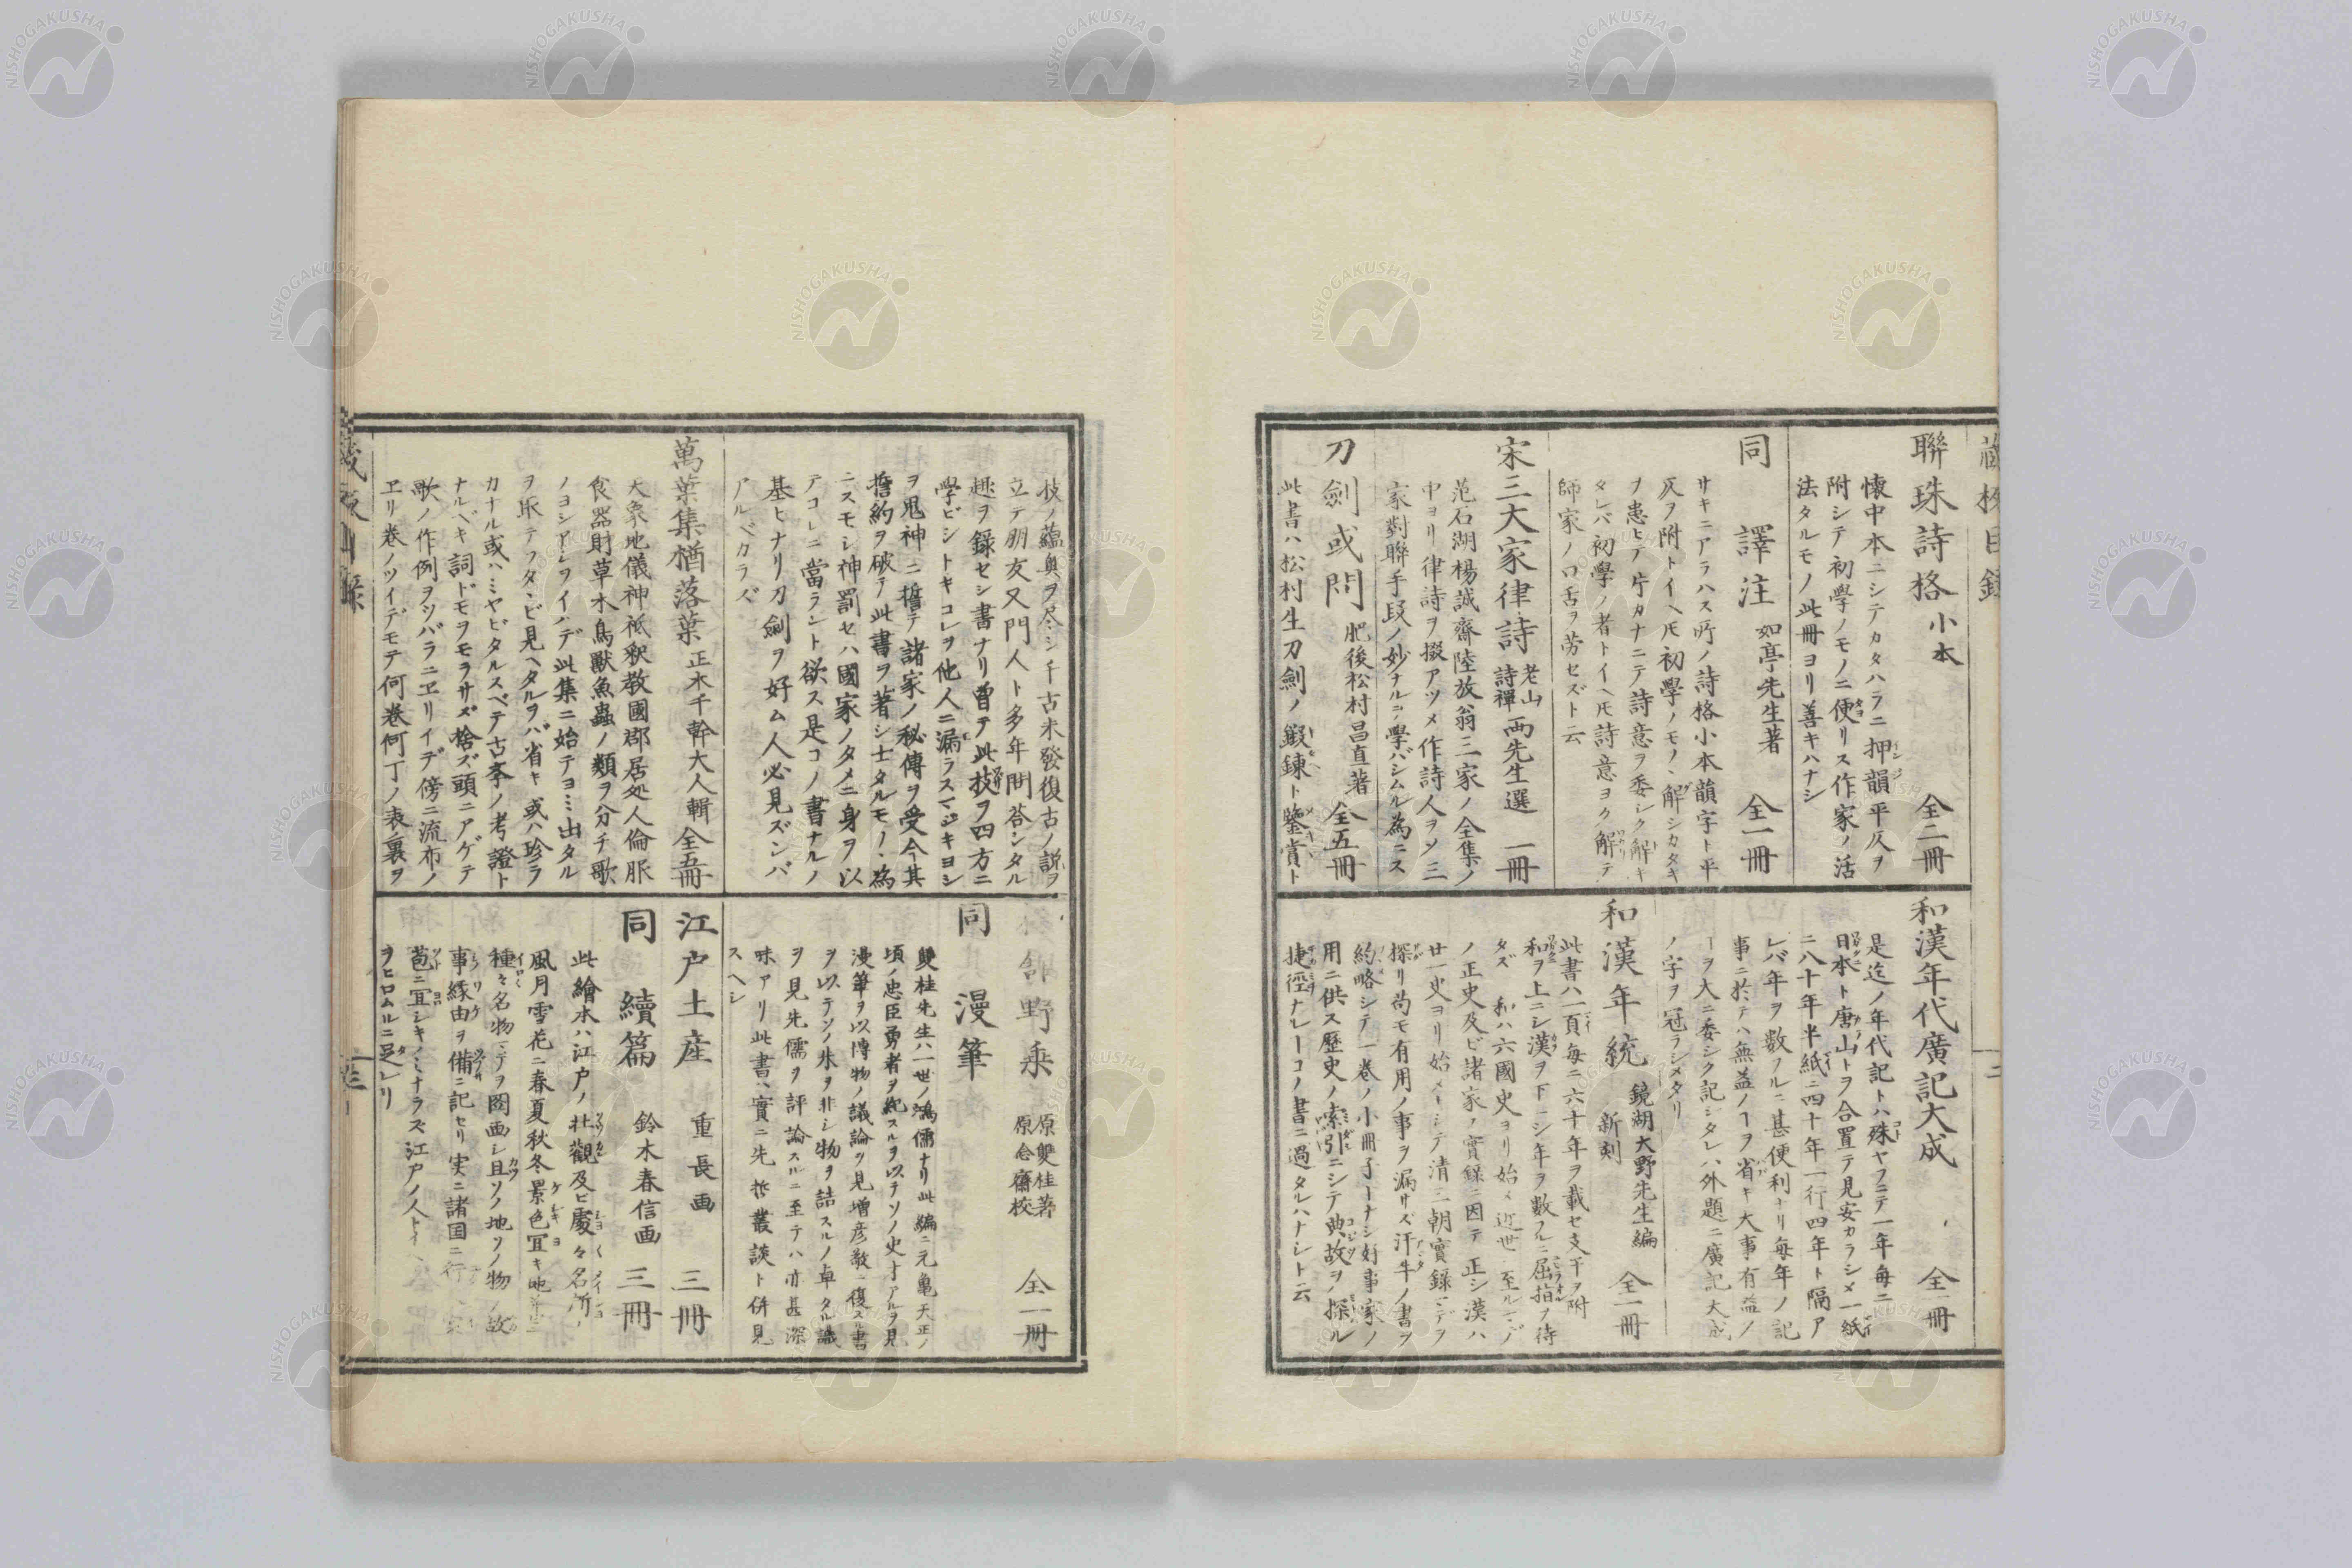 聯珠詩格 小本 全二冊
懐中本ニシテカタハラニ押韻平仄ヲ
附シテ初學ノモノニ便リス作家ノ活
法タルモノ此冊ヨリ善キハナシ
同 譯注 如亭先生著 全一冊
サキニアラハス所ノ詩格小本韻字ト平
仄ヲ附トイヘ𪜈初學ノモノヽ解シカタキ
ヲ患ヒテ片カナニテ詩意ヲ委シク解キ
タレバ初學ノ者トイヘ𪜈詩意ヨク解テ
師家ノ口舌ヲ労セズト云
宋三大家律詩 老山 詩禪 両先生選 一冊
范石湖楊誠齋陸放翁三家ノ全集ノ
中ヨリ律詩ヲ掇アツメ作詩人ヲソ三
家對聯手段ノ妙ナルヿ學バシムル為ニス
刀劍或問 肥後松村昌直著 全五冊
此書ハ松村生刀劍ノ鍛錬ト鑒賞ト
和漢年代廣記大成 全一冊
是迄ノ年代記トハ殊ヤフニテ一年毎ニ
日本ト唐山トヲ合置テ見安カラシメ一紙
ニ八十年半紙ニ四十年一行四年ト隔ア
レバ年ヲ數フルニ甚便利ナリ毎年ノ記
事ニ於テハ無益ノヿヲ省キ大事有益ノ
ヿヲ大ニ委シク記シタレハ外題ニ廣記大成
ノ字ヲ冠ラシメタリ
和漢年統 鏡湖大野先生編 新刻 全一冊
此書ハ一頁毎ニ六十年ヲ載セ支干ヲ附
和ヲ上ニシ漢ヲ下ニシ年ヲ數フルニ屈指ヲ待
タズ 和ハ六國史ヨリ始メ近世ニ至ルマデ
ノ正史及ビ諸家ノ實録ニ因テ正シ漢ハ
廿一史ヨリ始メーシテ清三朝實録マデヲ
探リ尚モ有用ノ事ヲ漏サズ汗牛ノ書ヲ
約略シテ一巻ノ小冊子トナシ好事家ノ
用ニ供ス歴史ノ索引ニシテ典故ヲノ探ル
捷徑ナルヿコノ書ニ過タルハナシト云
技ノ蘊奥ヲ尽シ千古未發復古ノ説ヲ
立テ朋友又門人ト多年問答シタル
趣ヲ録セシ書ナリ曽テ此技ヲ四方ニ
學ビシトキコレヲ他人ニ漏ラスマジキヨシ
ヲ鬼神ニ誓テ諸家ノ秘傳ヲ受今其
誓約ヲ破テ此書ヲ著シ士タルモノヽ為
ニスモシ神罰セハ國家ノタメニ身ヲ以
アコレニ當ラント欲ス是コノ書ナルノ
基ヒナリ刀劍ヲ好ム人必見ズンバ
アルベカラズ
萬葉集楢落葉 正木千幹大人輯 全五冊
天象地儀神祇釈教國郡居処人倫服
食器財草木鳥獣魚蟲ノ類ヲ分チ歌
ノヨシアシヲイハデ此集ニ始テヨミ出タル
ヲ取テフタヽビ見ヘタルヲバ省キ或ハ珍ラ
カナル或ハミヤビタルスベテ古本ノ考證ト
ナルベキ詞ドモヲモラサズ捨ズ頭ニアゲテ
歌ノ作例ヲツバラニヱリイデ傍ニ流布ノ
ヱリ巻ノツイデモテ何巻何丁ノ表裏ヲ
野乗 原雙桂著 原念齋校 全一冊
同 漫筆
雙桂先生ハ一世ノ鴻儒ナリ此編ニ元亀天正ノ
頃ノ忠臣勇者ヲ紀スルヲ以テソノ史才アルヲ見
漫筆ヲ以博物ノ議論ヲ見増彦敬ニ復スル書
ヲ以テソノ朱ヲ非シ物ヲ詰スルノ卓タル識
ヲ見先儒ヲ評論スルニ至テハ亦甚深
味アリ此書ハ實ニ先哲叢談ト併見
スヘシ
江戸土産 重長画 三冊
同 續篇 鈴木春信画 三冊
此繪本ハ江戸ノ壮觀及ヒ處々名所ノ
風月雪花ニ春夏秋冬景色冝キ地
種々名物マデヲ圖画シ且ソノ地ソノ物ノ故
事縁由ヲ備ニ記セリ実ニ諸国ニ行
苞ニ冝シキノミナラズ江戸ノ人トイヘ
ヲヒロムルニ足レリ